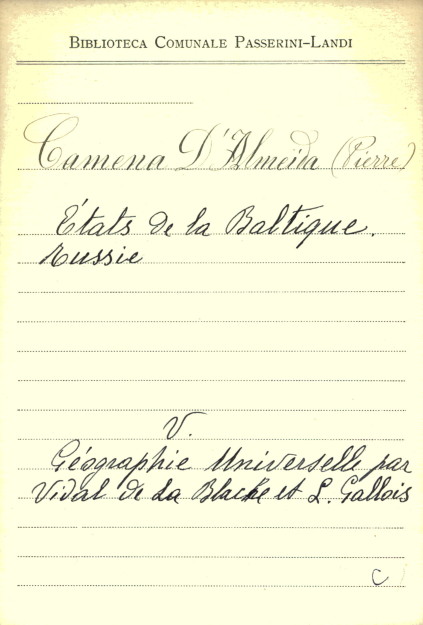 BIBLIOTECA COMUNALE PASSERINI-LANDI
Camena D'Almeida (Pierre)
États de la Baltique.
Russie
V.
Géographie Universelle par
Vidal de La Blache et L. Gallois
C